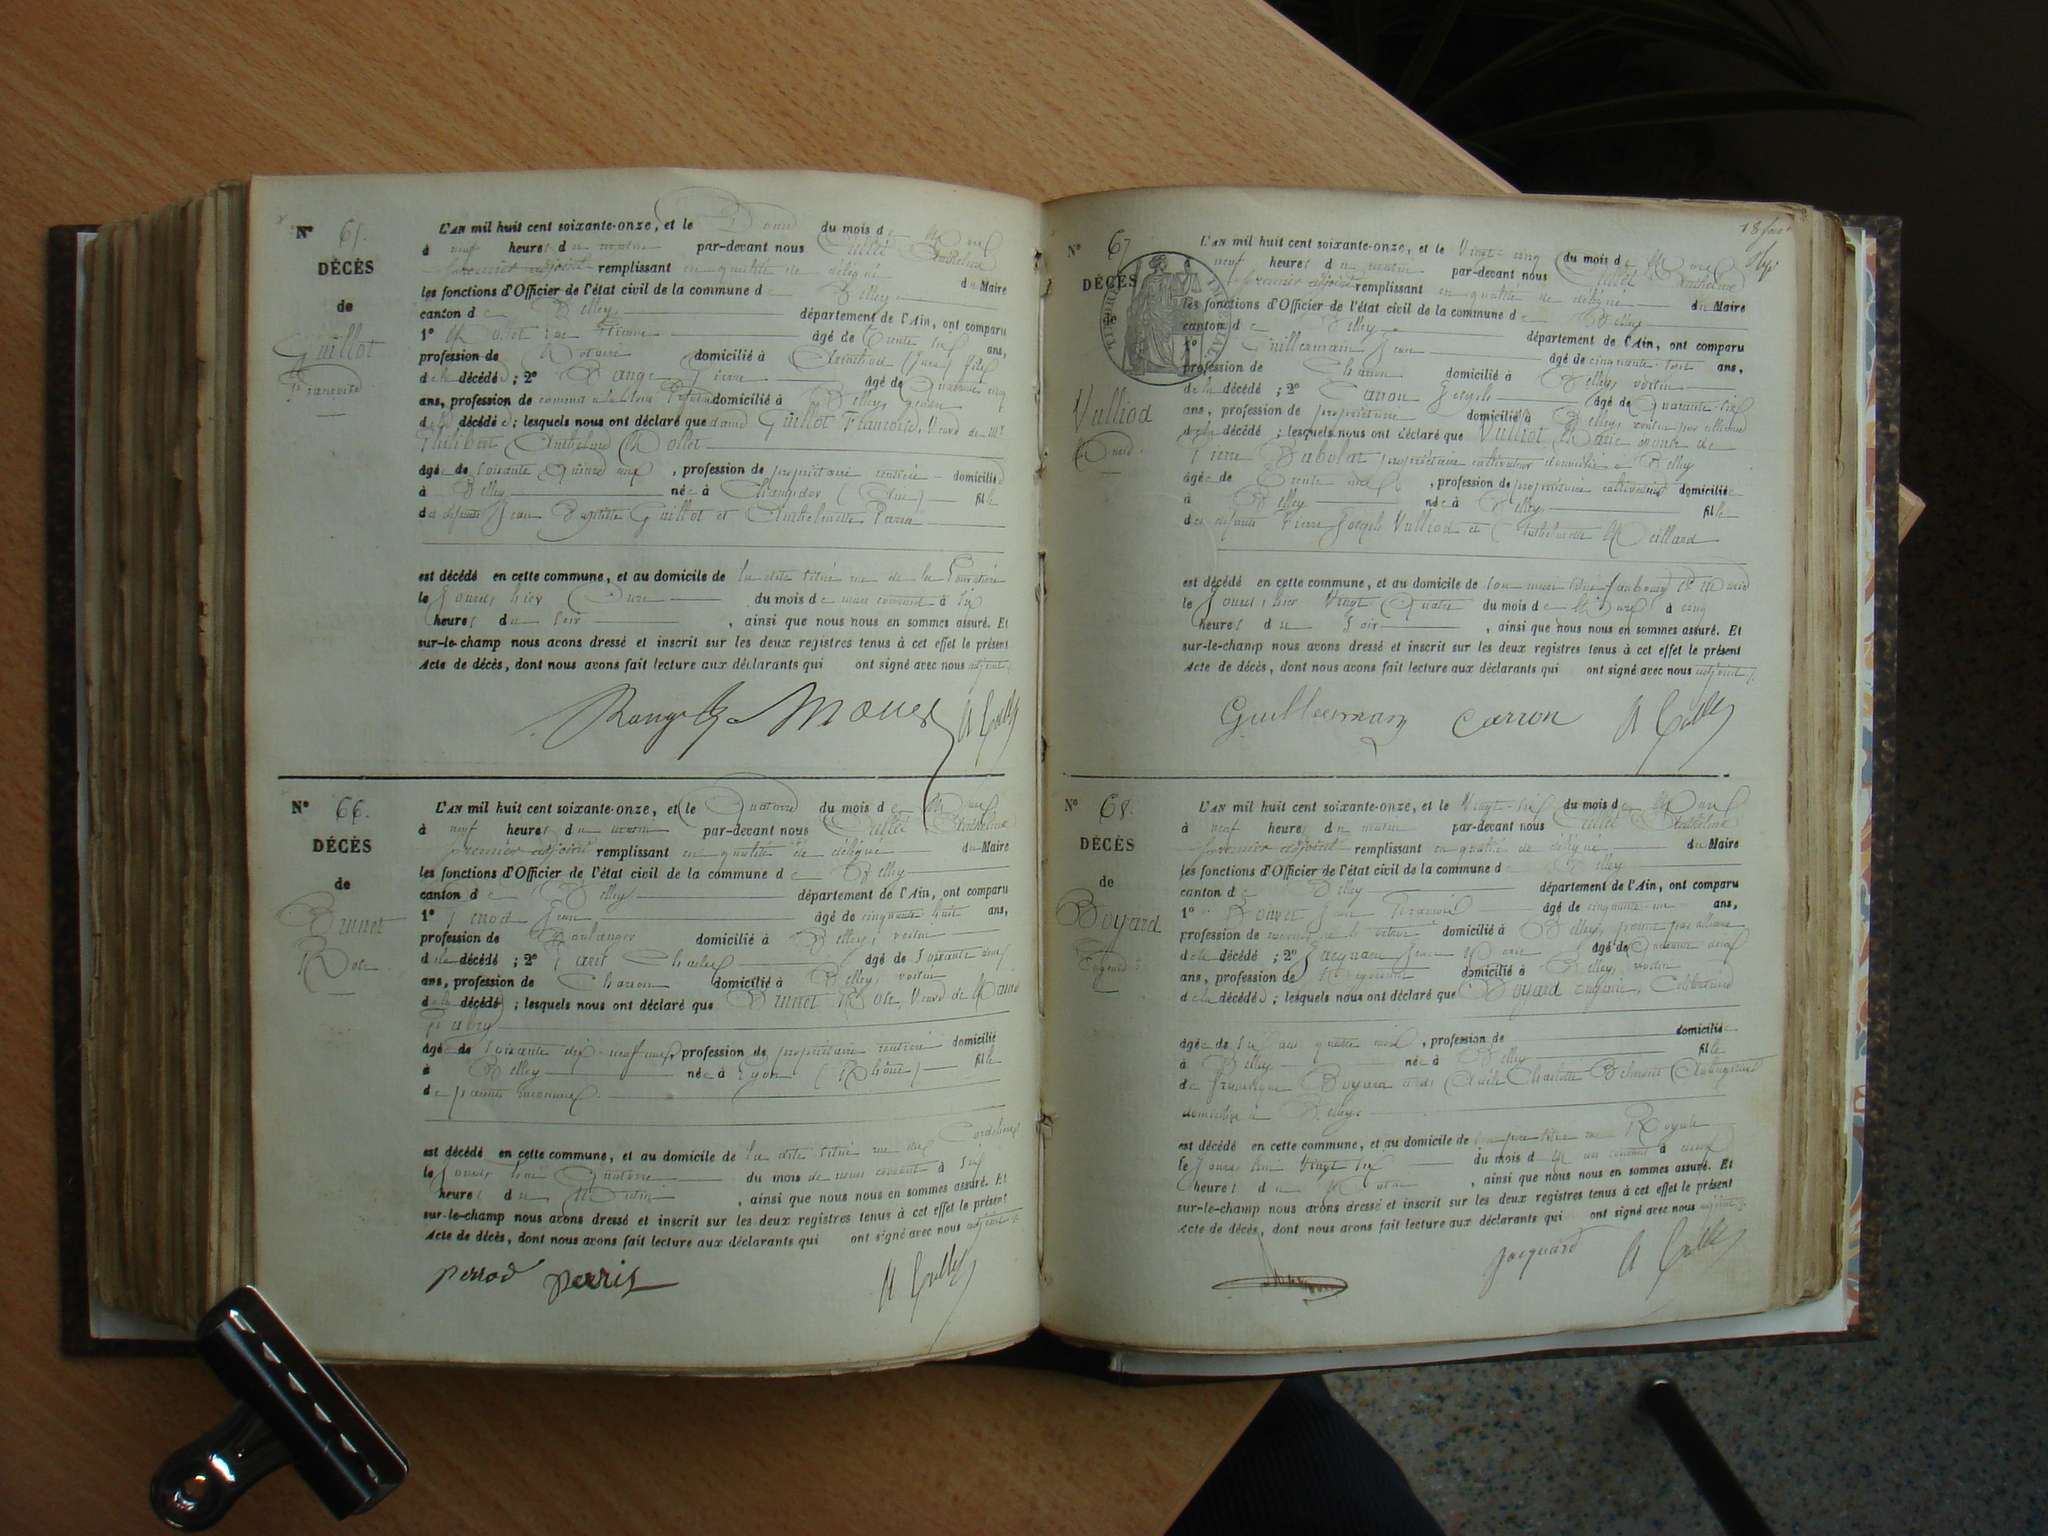 Nº 65.
DÉCÈS
de
Guillot
Françoise
L'AN mil huit cent soixante-onze, et le Douze du mois de Mars
à neuf heures du matin par-devant nous Anthelme
premier adjoint remplissant en qualité de délégué du Maire
les fonctions d'Officier de l'état civil de la commune de Belley
canton de Belley département de l'Ain, ont comparu
1º âgé de trente six ans,
profession de Notaire domicilié à fils
de la décédée ; 2º Pierre âgé de Quarante cinq
ans, profession de domicilié à Belley
de la décédée ; lesquels nous ont déclaré que dame Guillot Françoise, Veuve de Mr
Philibert Anthelme Mollet
âgée de soixante Quinze ans, profession de propriétaire rentière domiciliée
à Belley née à (Ain) fille
de défunts Jean Baptiste Guillot et Anthelmette
est décédée en cette commune, et au domicile de la dite situé rue de la
le jour d'hier Onze du mois de mars courant à six
heures du soir, ainsi que nous nous en sommes assuré. Et
sur-le-champ nous avons dressé et inscrit sur les deux registres tenus à cet effet le présent
Acte de décès, dont nous avons fait lecture aux déclarants qui ont signé avec nous adjoint.
Nº 66.
DÉCÈS
de
Brunet
Rose
L'AN mil huit cent soixante-onze, et le Quatorze du mois de Mars
à neuf heures du matin par-devant nous Anthelme
premier adjoint remplissant en qualité de délégué du Maire
les fonctions d'Officier de l'état civil de la commune de Belley
canton de Belley département de l'Ain, ont comparu
1º Perrod Jean âgé de cinquante huit ans,
profession de Boulanger domicilié à Belley, voisin
de la décédée ; 2º Paris Charles âgé de soixante deux
ans, profession de Charron domicilié à Belley, voisin
de la décédée ; lesquels nous ont déclaré que Brunet Rose, Veuve de
âgée de soixante dix-neuf ans, profession de propriétaire rentière domiciliée
à Belley née à Lyon (Rhône) fille
de parents inconnus
est décédée en cette commune, et au domicile de la dite situé rue des Cordeliers
le Quatorze du mois de mars courant à six
heures du Matin, ainsi que nous nous en sommes assuré. Et
sur-le-champ nous avons dressé et inscrit sur les deux registres tenus à cet effet le présent
Acte de décès, dont nous avons fait lecture aux déclarants qui ont signé avec nous adjoint.
perrod paris
Nº 67
DÉCÈS
de
Vulliod
Marie
L'AN mil huit cent soixante-onze, et le Vingt-cinq du mois de Mars
à neuf heures du matin par-devant nous Anthelme
premier adjoint remplissant en qualité de délégué du Maire
les fonctions d'Officier de l'état civil de la commune de Belley
canton de Belley département de l'Ain, ont comparu
1º Guillemain Jean âgé de cinquante-huit ans,
profession de Charron domicilié à Belley, voisin
de la décédée ; 2º Carron Joseph âgé de Quarante six
ans, profession de propriétaire domicilié à Belley, voisin
de la décédée ; lesquels nous ont déclaré que Vulliot Marie épouse de
Pierre propriétaire cultivateur domicilié à Belley
âgée de trente, profession de propriétaire cultivateur domiciliée
à Belley née à Belley fille
de défunts Pierre Joseph Vulliod et Anthelmette
est décédée en cette commune, et au domicile de son mari situé faubourg
le jour d'hier Vingt Quatre du mois de Mars à cinq
heures du Soir, ainsi que nous nous en sommes assuré. Et
sur-le-champ nous avons dressé et inscrit sur les deux registres tenus à cet effet le présent
Acte de décès, dont nous avons fait lecture aux déclarants qui ont signé avec nous adjoint.
Guillerman carron
Nº 68.
DÉCÈS
de
Boyard
Eugénie
L'AN mil huit cent soixante-onze, et le Vingt-six du mois de Mars
à neuf heures du matin par-devant nous Anthelme
premier adjoint remplissant en qualité de délégué du Maire
les fonctions d'Officier de l'état civil de la commune de Belley
canton de Belley département de l'Ain, ont comparu
1º Jean François âgé de cinquante ans,
profession de domicilié à Belley
de la décédée ; 2º Jacquard Jean Marie âgé de Quarante deux
ans, profession de domicilié à Belley, voisin
de la décédée ; lesquels nous ont déclaré que Boyard Eugénie, Célibataire
âgée de six ans quatre mois, profession de domiciliée
à Belley née à Belley fille
de Boyard et de Charlotte
domiciliés à Belley.
est décédée en cette commune, et au domicile de son père situé rue Royale
le Vingt six du mois de courant à deux
heures du Matin, ainsi que nous nous en sommes assuré. Et
sur-le-champ nous avons dressé et inscrit sur les deux registres tenus à cet effet le présent
Acte de décès, dont nous avons fait lecture aux déclarants qui ont signé avec nous adjoint.
jacquard